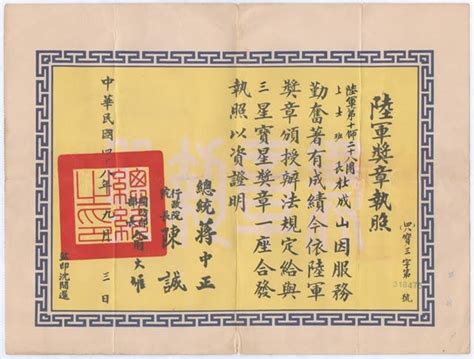 陸軍獎章執照
典寶三字第 318475 號
陸軍第十師二十八團
上士班長杜成山因服務
勤奮著有成績今依陸軍
獎章頒授辦法規定給與
三星寶星獎章一座合發
執照以資證明
總統 蔣中正
行政院院長 陳誠
國防部部長 俞大維
中華民國四十八年九月三日
監印沈開運